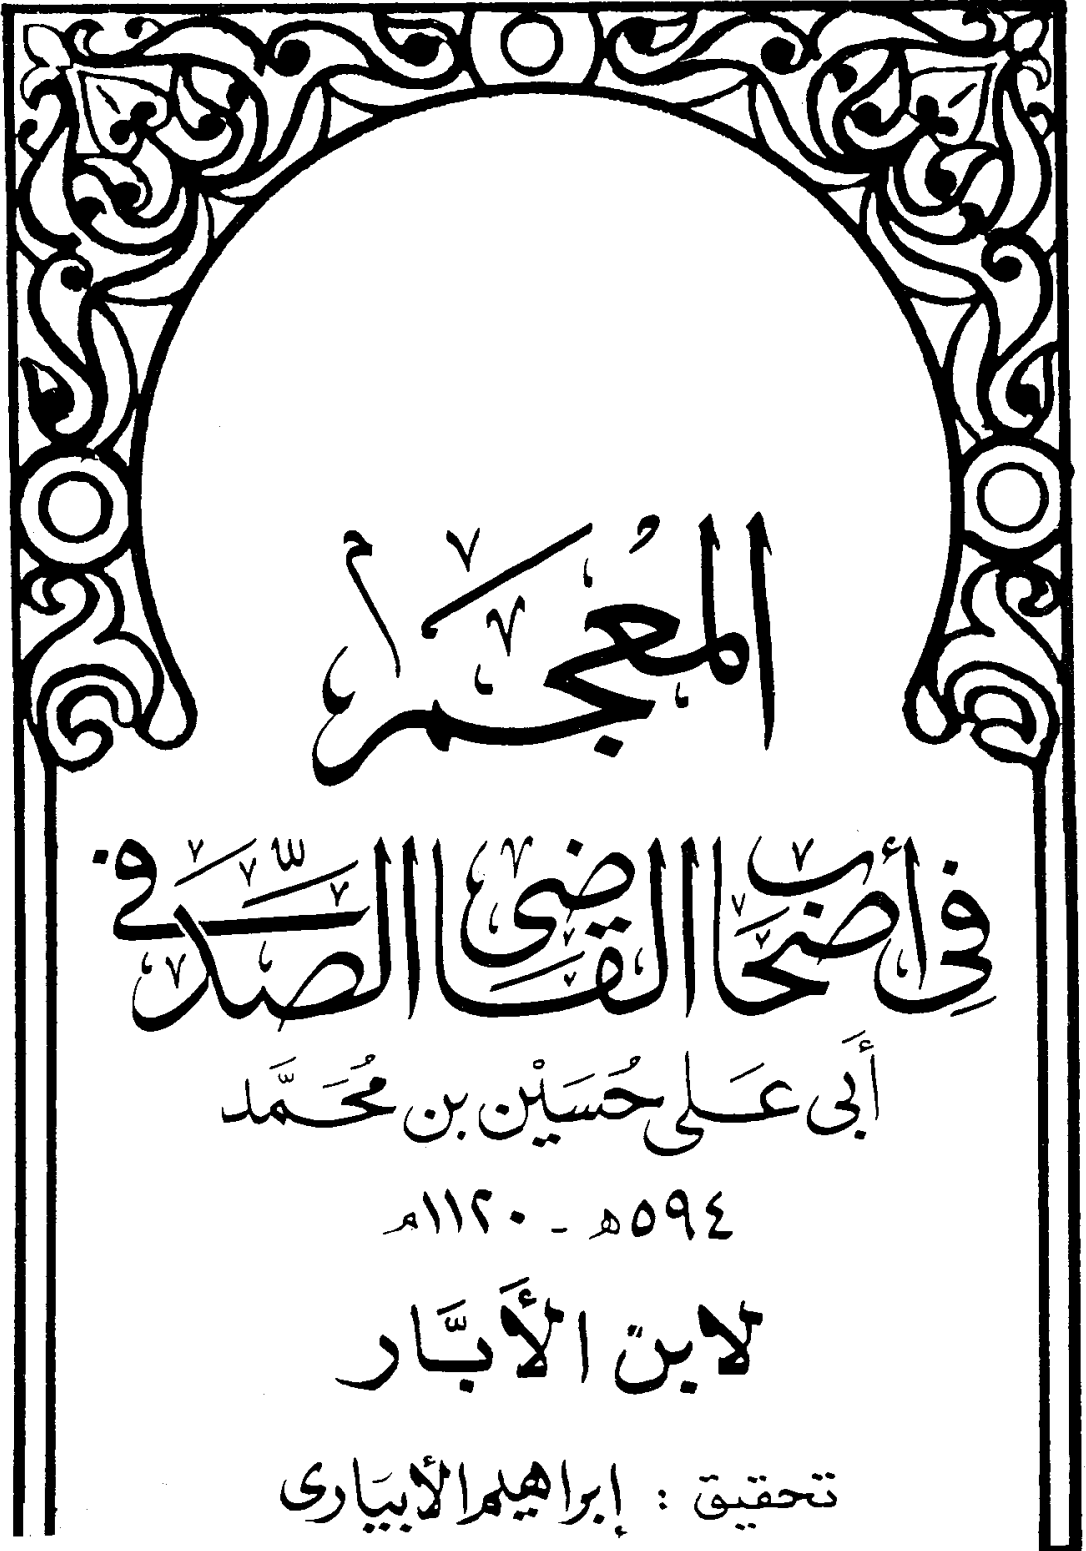 المُعْجَمُ
فِي أَصْحَابِ القَاضِي الصَّدَفي
أَبي عَلي حُسَيْن بن مُحَمَّد
٥٩٤ هـ - ١١٢٠ م
لابن الأَبَّار
تحقيق : إبراهيم الأبيَارى